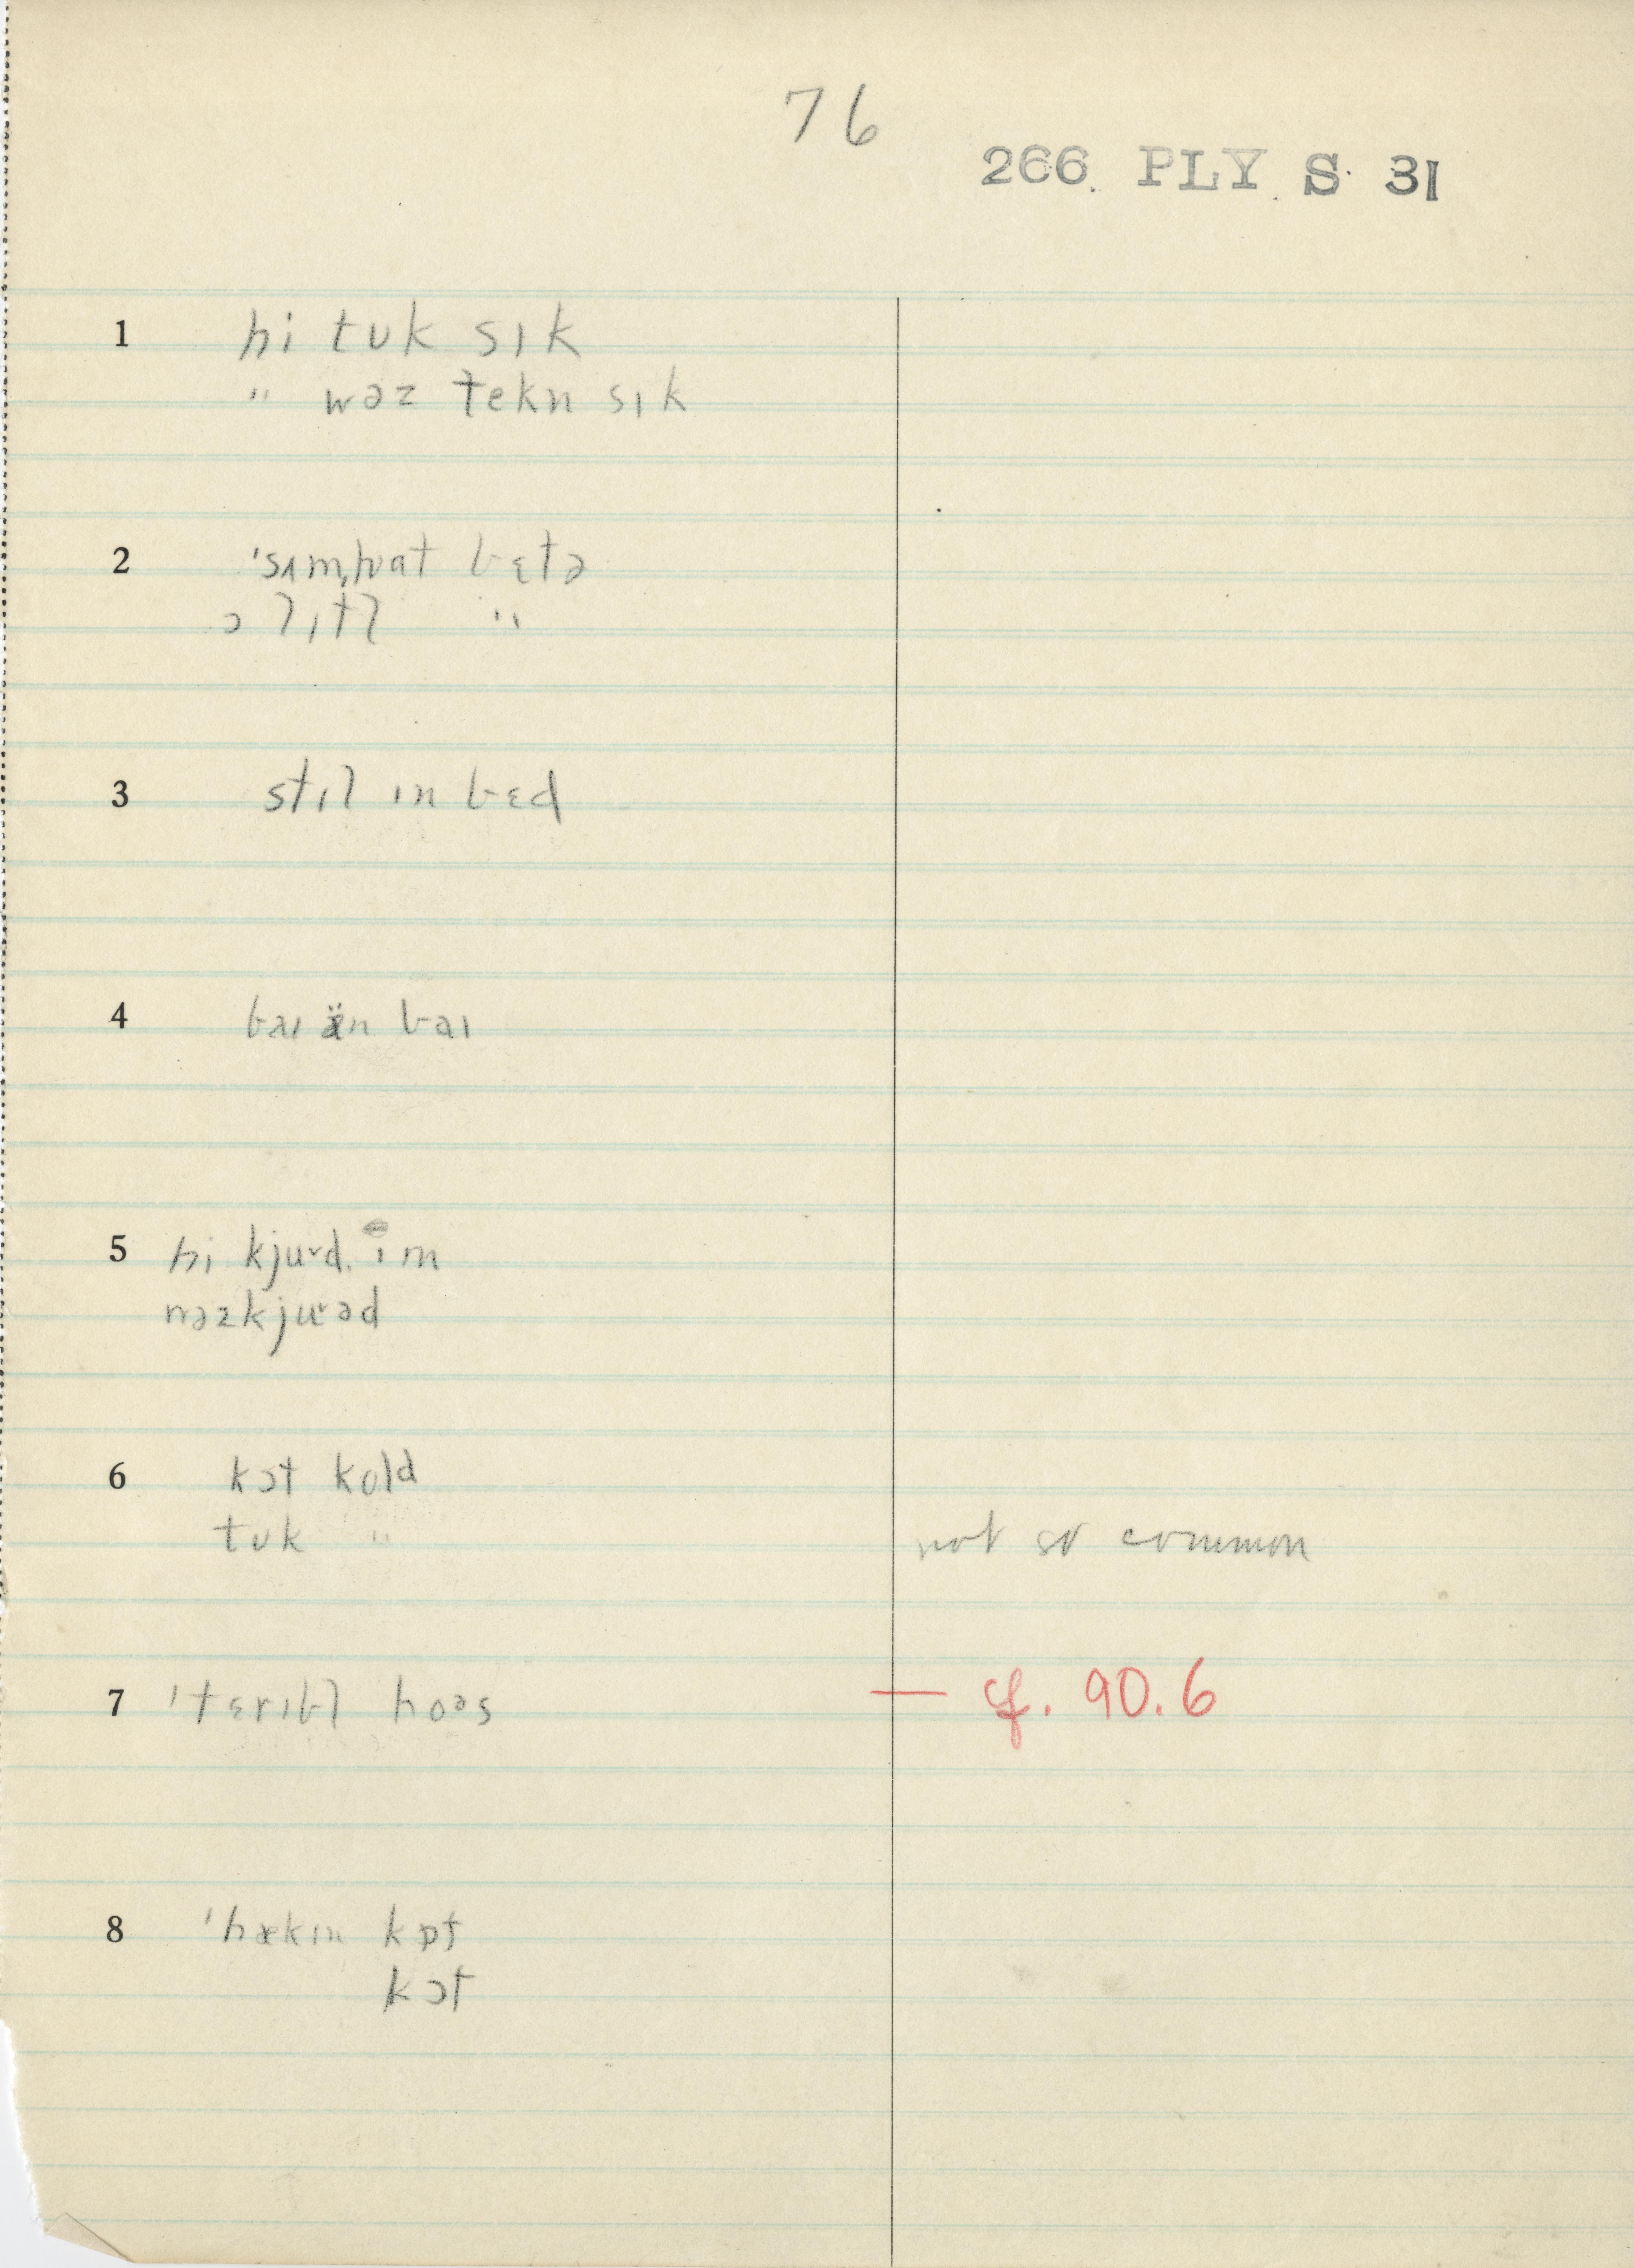 76
266. PLY. S. 31
1 hi tʊk sɪk
" wəz tekn sɪk
2 ˈsʌmˌhwat bɛtə
ə lɪtl "
3 stɪl ɪn bɛd
4 baɪ ən baɪ
5 hi kjuɚd. ɪm
wəzkjuɚəd
6 kɔt kold
tʊk " not so common
7 ˈtɛrɪbl hoəs — cf. 90.6
8 ˈhækɪn kɒf
kɔf